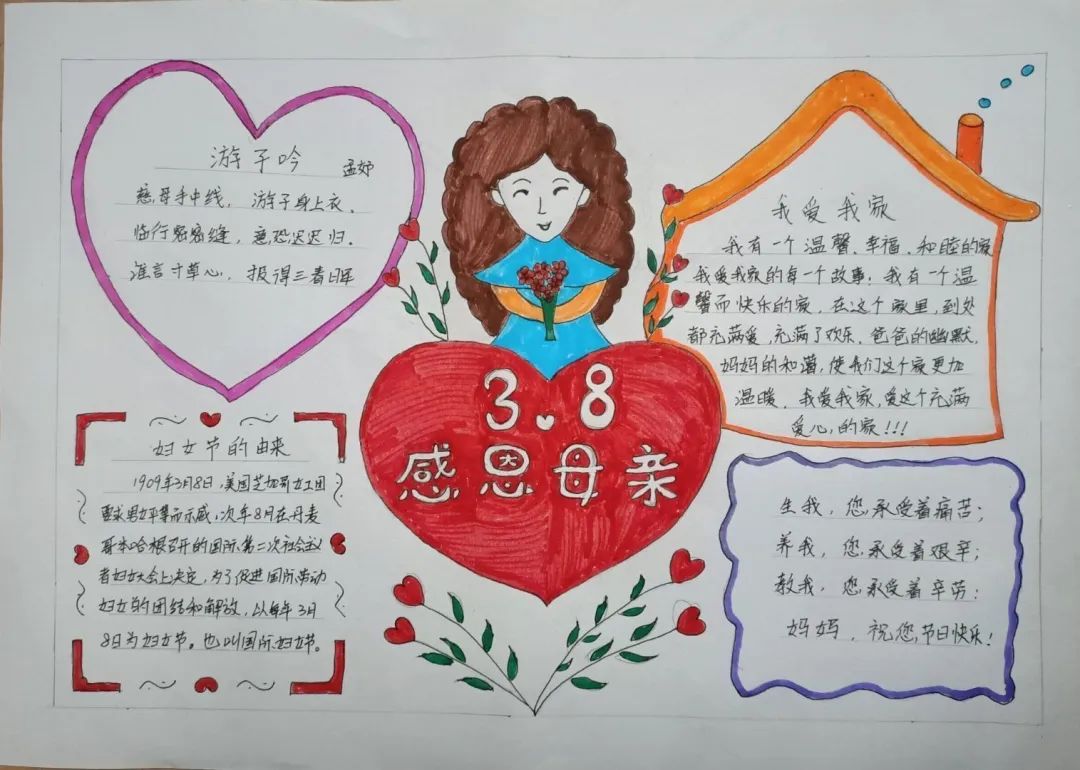 游子吟
孟郊
慈母手中线，游子身上衣。
临行密密缝，意恐迟迟归。
谁言寸草心，报得三春晖
3.8
感恩母亲
我爱我家
我有一个温馨、幸福、和睦的家
我爱我家的每一个故事：我有一个温
馨而快乐的家，在这个家里，到处
都充满爱，充满了欢乐。爸爸的幽默，
妈妈的和谐，使我们这个家更加
温暖。我爱我家，爱这个充满
爱心的家!!!
妇女节的由来
1909年3月8日，美国芝加哥女工因
要求男女平等而示威，次年8月在丹麦
哥本哈根召开的国际第二次社会议
者妇女大会上决定，为了促进国际劳动
妇女的团结和解放，以每年3月
8日为妇女节。也叫国际妇女节。
生我，您承受着痛苦；
养我，您承受着艰辛；
教我，您承受着辛劳；
妈妈，祝您节日快乐！